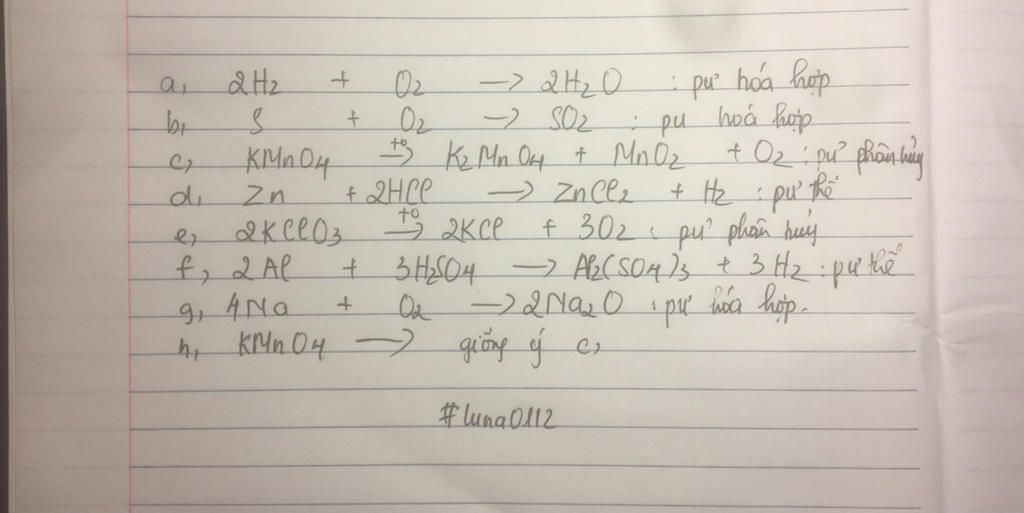 a, 2H2 + O2 → 2H2O : pư hóa hợp
b, S + O2 → SO2 : pư hoá hợp
c, KMnO4 t0→ K2MnO4 + MnO2 + O2 : pư phân hủy
d, Zn + 2HCl → ZnCl2 + H2 : pư thế
e, 2KClO3 t0→ 2KCl + 3O2 : pư phân hủy
f, 2Al + 3H2SO4 → Al2(SO4)3 + 3H2 : pư thế
g, 4Na + O2 → 2Na2O : pư hóa hợp.
h, KMnO4 → giống ý c,
#luna0112